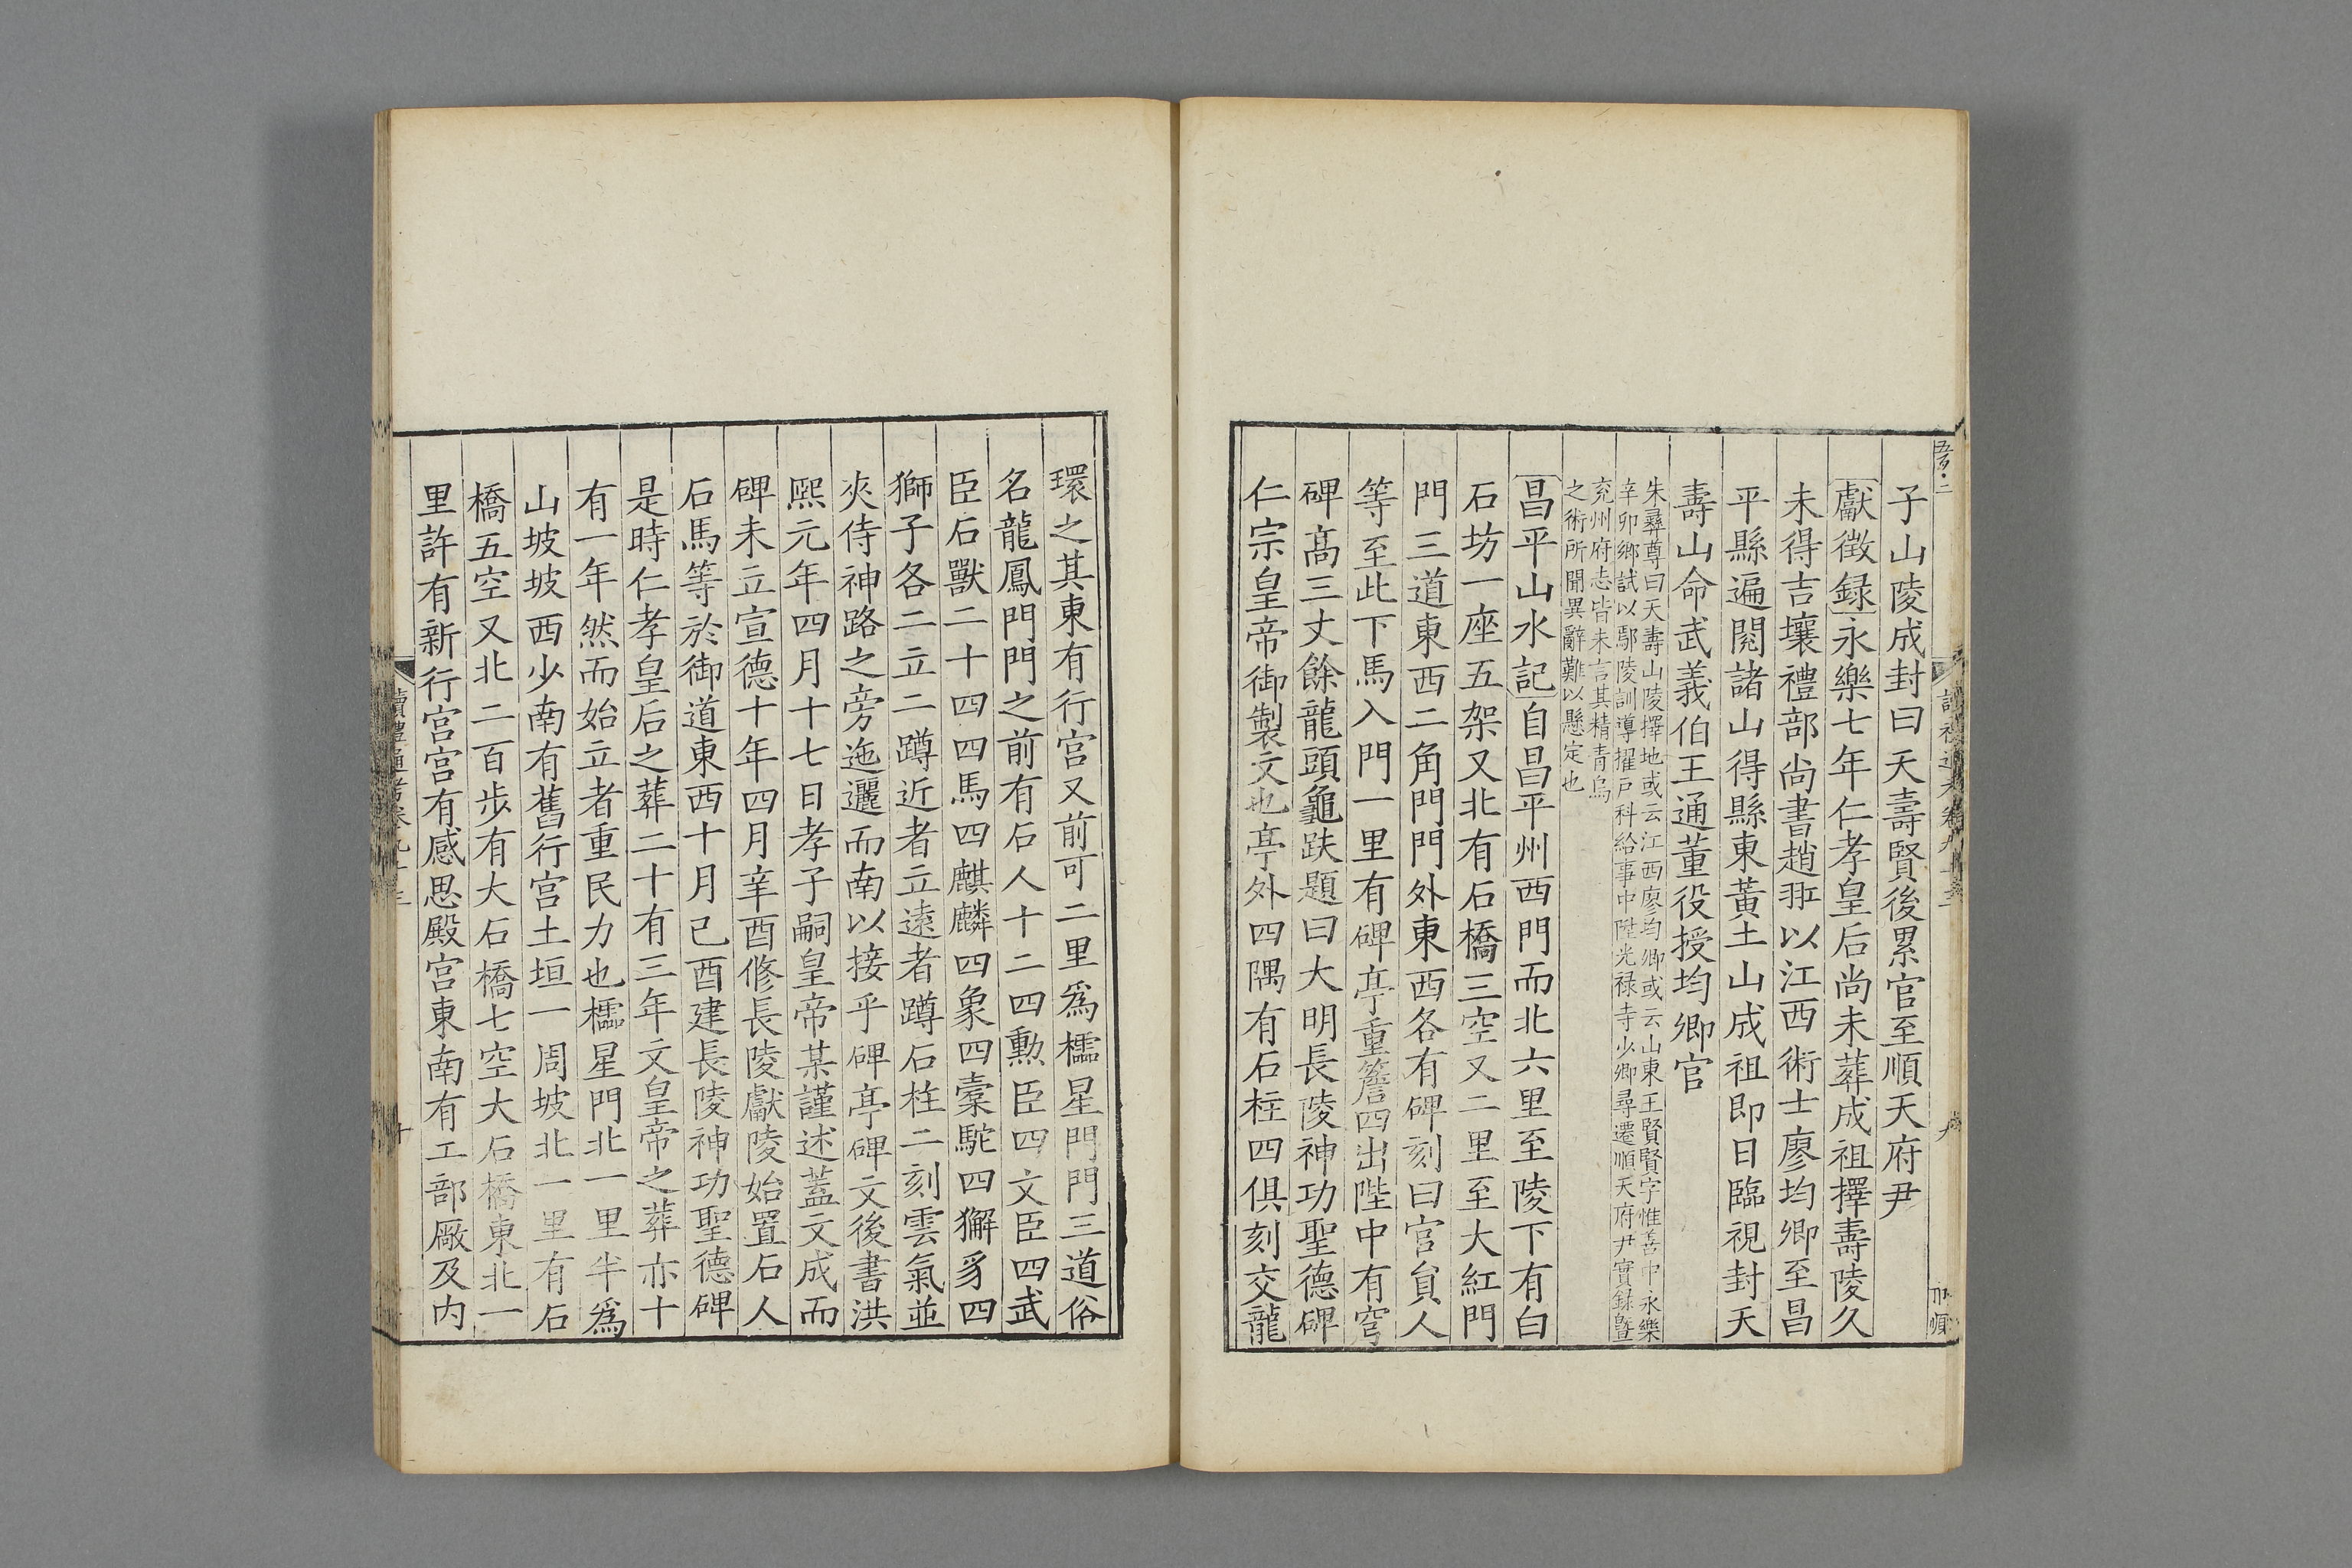 子山陵成封曰天壽賢後累官至順天府尹
獻徵録永樂七年仁孝皇后尚未葬成祖擇壽陵久
未得吉壤禮部尚書趙羾以江西術士廖均卿至昌
平縣遍閱諸山得縣東黃土山成祖即日臨視封天
壽山命武義伯王通董役授均卿官
朱彞尊曰天壽山陵擇地或云江西廖均卿或云山東王賢賢字惟善中永樂
辛卯鄉試以鄢陵訓導擢戸科給事中陞光禄寺少卿尋遷順天府尹實録曁
兖州府志皆未言其精青烏
之術所聞異辭難以懸定也
昌平山水記自昌平州西門而北六里至陵下有白
石坊一座五架又北有石橋三空又二里至大紅門
門三道東西二角門門外東西各有碑刻曰官員人
等至此下馬入門一里有碑亭重簷四出陛中有穹
碑髙三丈餘龍頭龜趺題曰大明長陵神功聖德碑
仁宗皇帝御製文也亭外四隅有石柱四俱刻交龍
環之其東有行宫又前可二里爲櫺星門門三道俗
名龍鳳門門之前有石人十二四勲臣四文臣四武
臣石獸二十四四馬四麒麟四象四槖駝四獬豸四
獅子各二立二蹲近者立遠者蹲石柱二刻雲氣並
夾侍神路之旁迤邐而南以接乎碑亭碑文後書洪
熙元年四月十七日孝子嗣皇帝某謹述蓋文成而
碑未立宣德十年四月辛酉修長陵獻陵始置石人
石馬等於御道東西十月己酉建長陵神功聖德碑
是時仁孝皇后之葬二十有三年文皇帝之葬亦十
有一年然而始立者重民力也櫺星門北一里半爲
山坡坡西少南有舊行宫土垣一周坡北一里有石
橋五空又北二百步有大石橋七空大石橋東北一
里許有新行宫宫有感思殿宫東南有工部厰及内